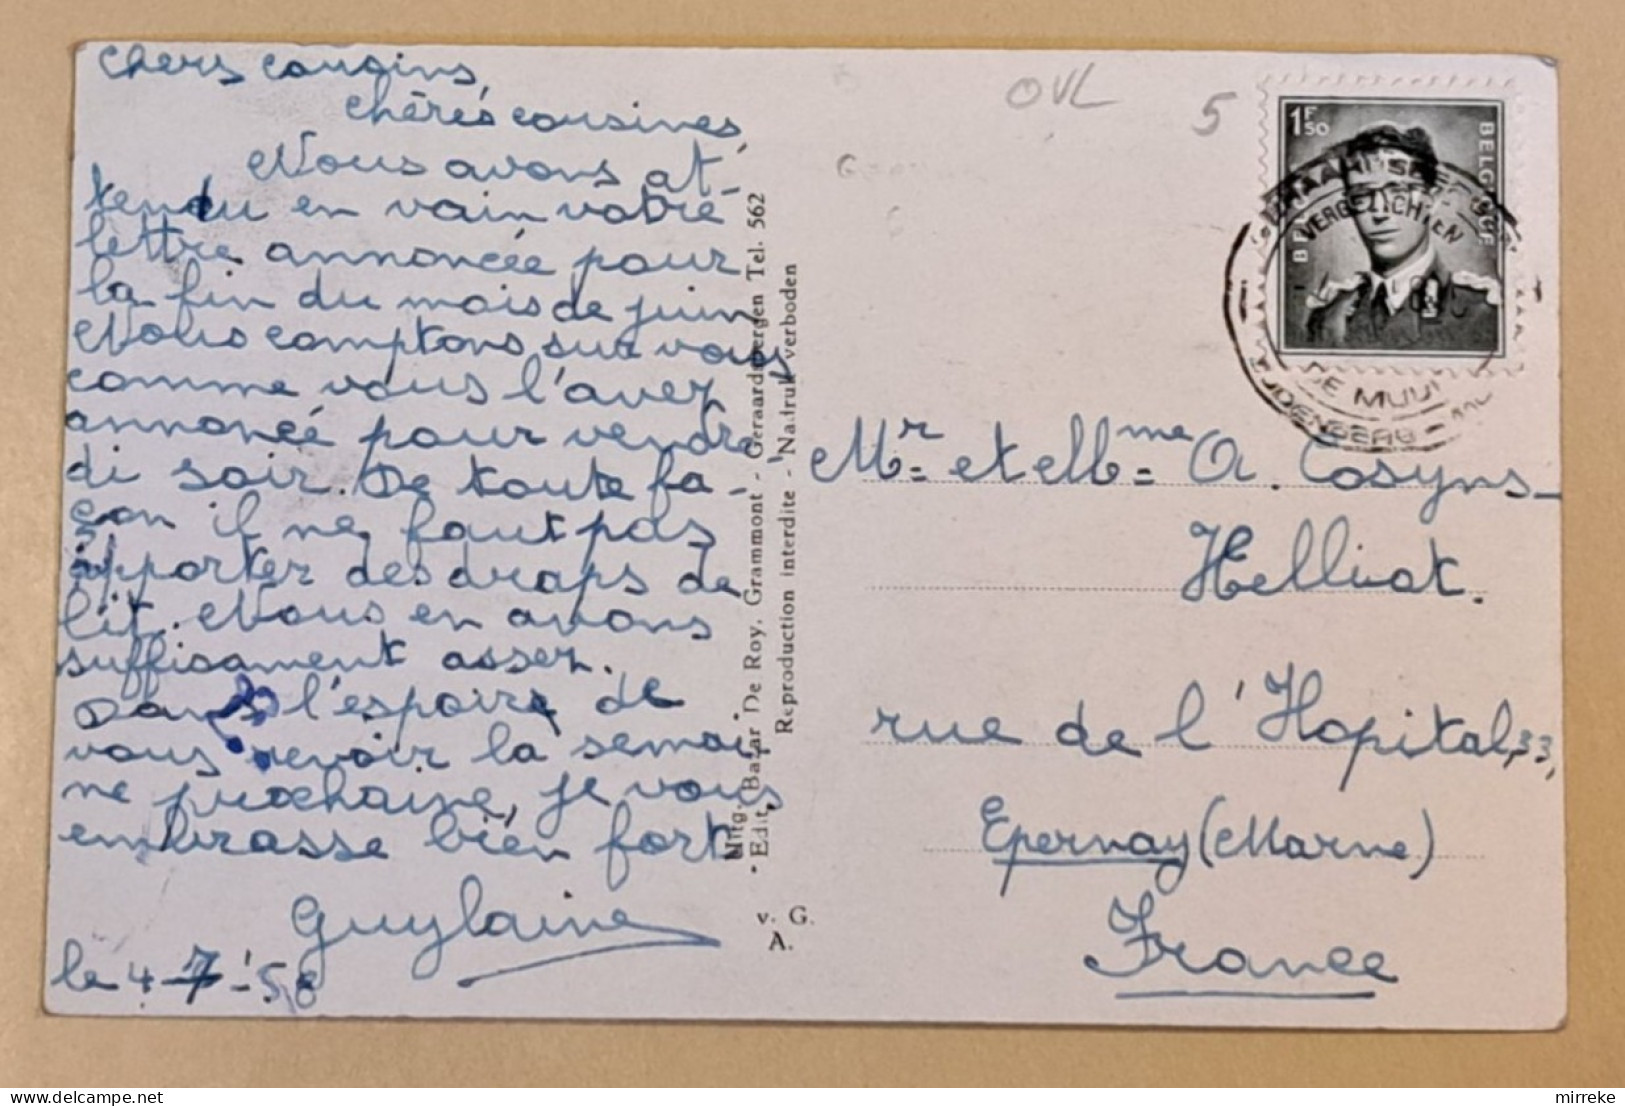 Chers cousins,
Chères cousines,
Nous avons at-
tendu en vain votre
lettre annoncée pour
la fin du mois de juin
Nous comptons sur vous
comme vous l'avez
annoncé pour vendre-
di soir. De toute fa-
çon il ne faut pas
apporter des draps de
lit. Nous en avons
suffisament assez.
Dans l'espoire de
vous revoir la semai-
ne prochaine, je vous
embrasse bien fort
Guylaine
le 4-7-'58
Uitg. Bazar De Roy, Grammont - Geraardsbergen Tel. 562
Edit. Reproduction interdite - Nadruk verboden
v. G.
A.
OVL
5
1F50
BELGIQUE
BELGIE
VERGEZICHTEN
DE MUUR
OUDENBERG
Mr. et Mme A. Cosyns-
Helliot.
rue de l'Hopital, 33,
Epernay (Marne)
France
mirreke